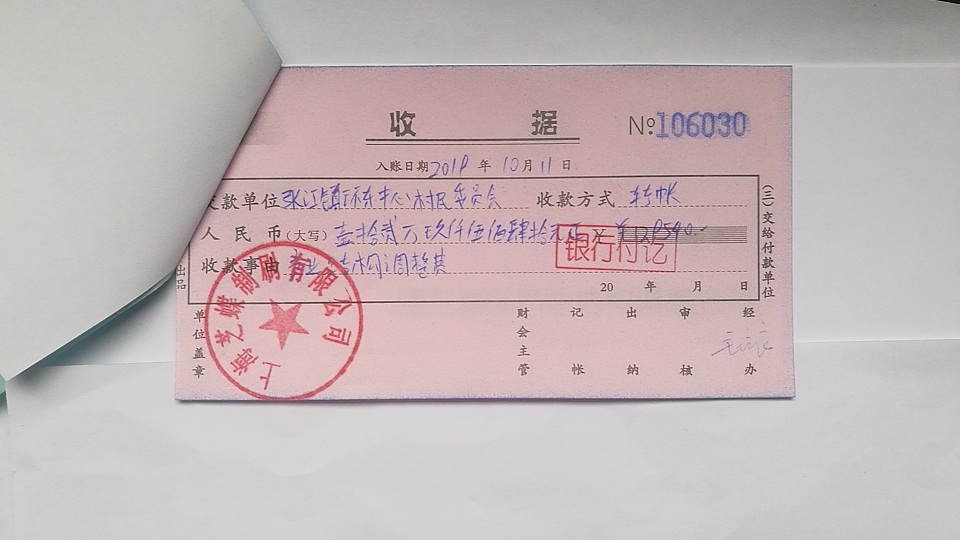 收 据
№106030
入账日期 2019 年 10 月 11 日
交款单位 张江镇环东中心村民委员会 收款方式 转帐
人民币(大写) 壹拾贰万玖仟伍佰肆拾元正 ¥ 129540.-
收款事由 产业结构调整费
银行付讫
20 年 月 日
(三)交给付款单位
出品
单位盖章
财会主管
记帐
出纳
审核
经办
上海艺蝶制刷有限公司